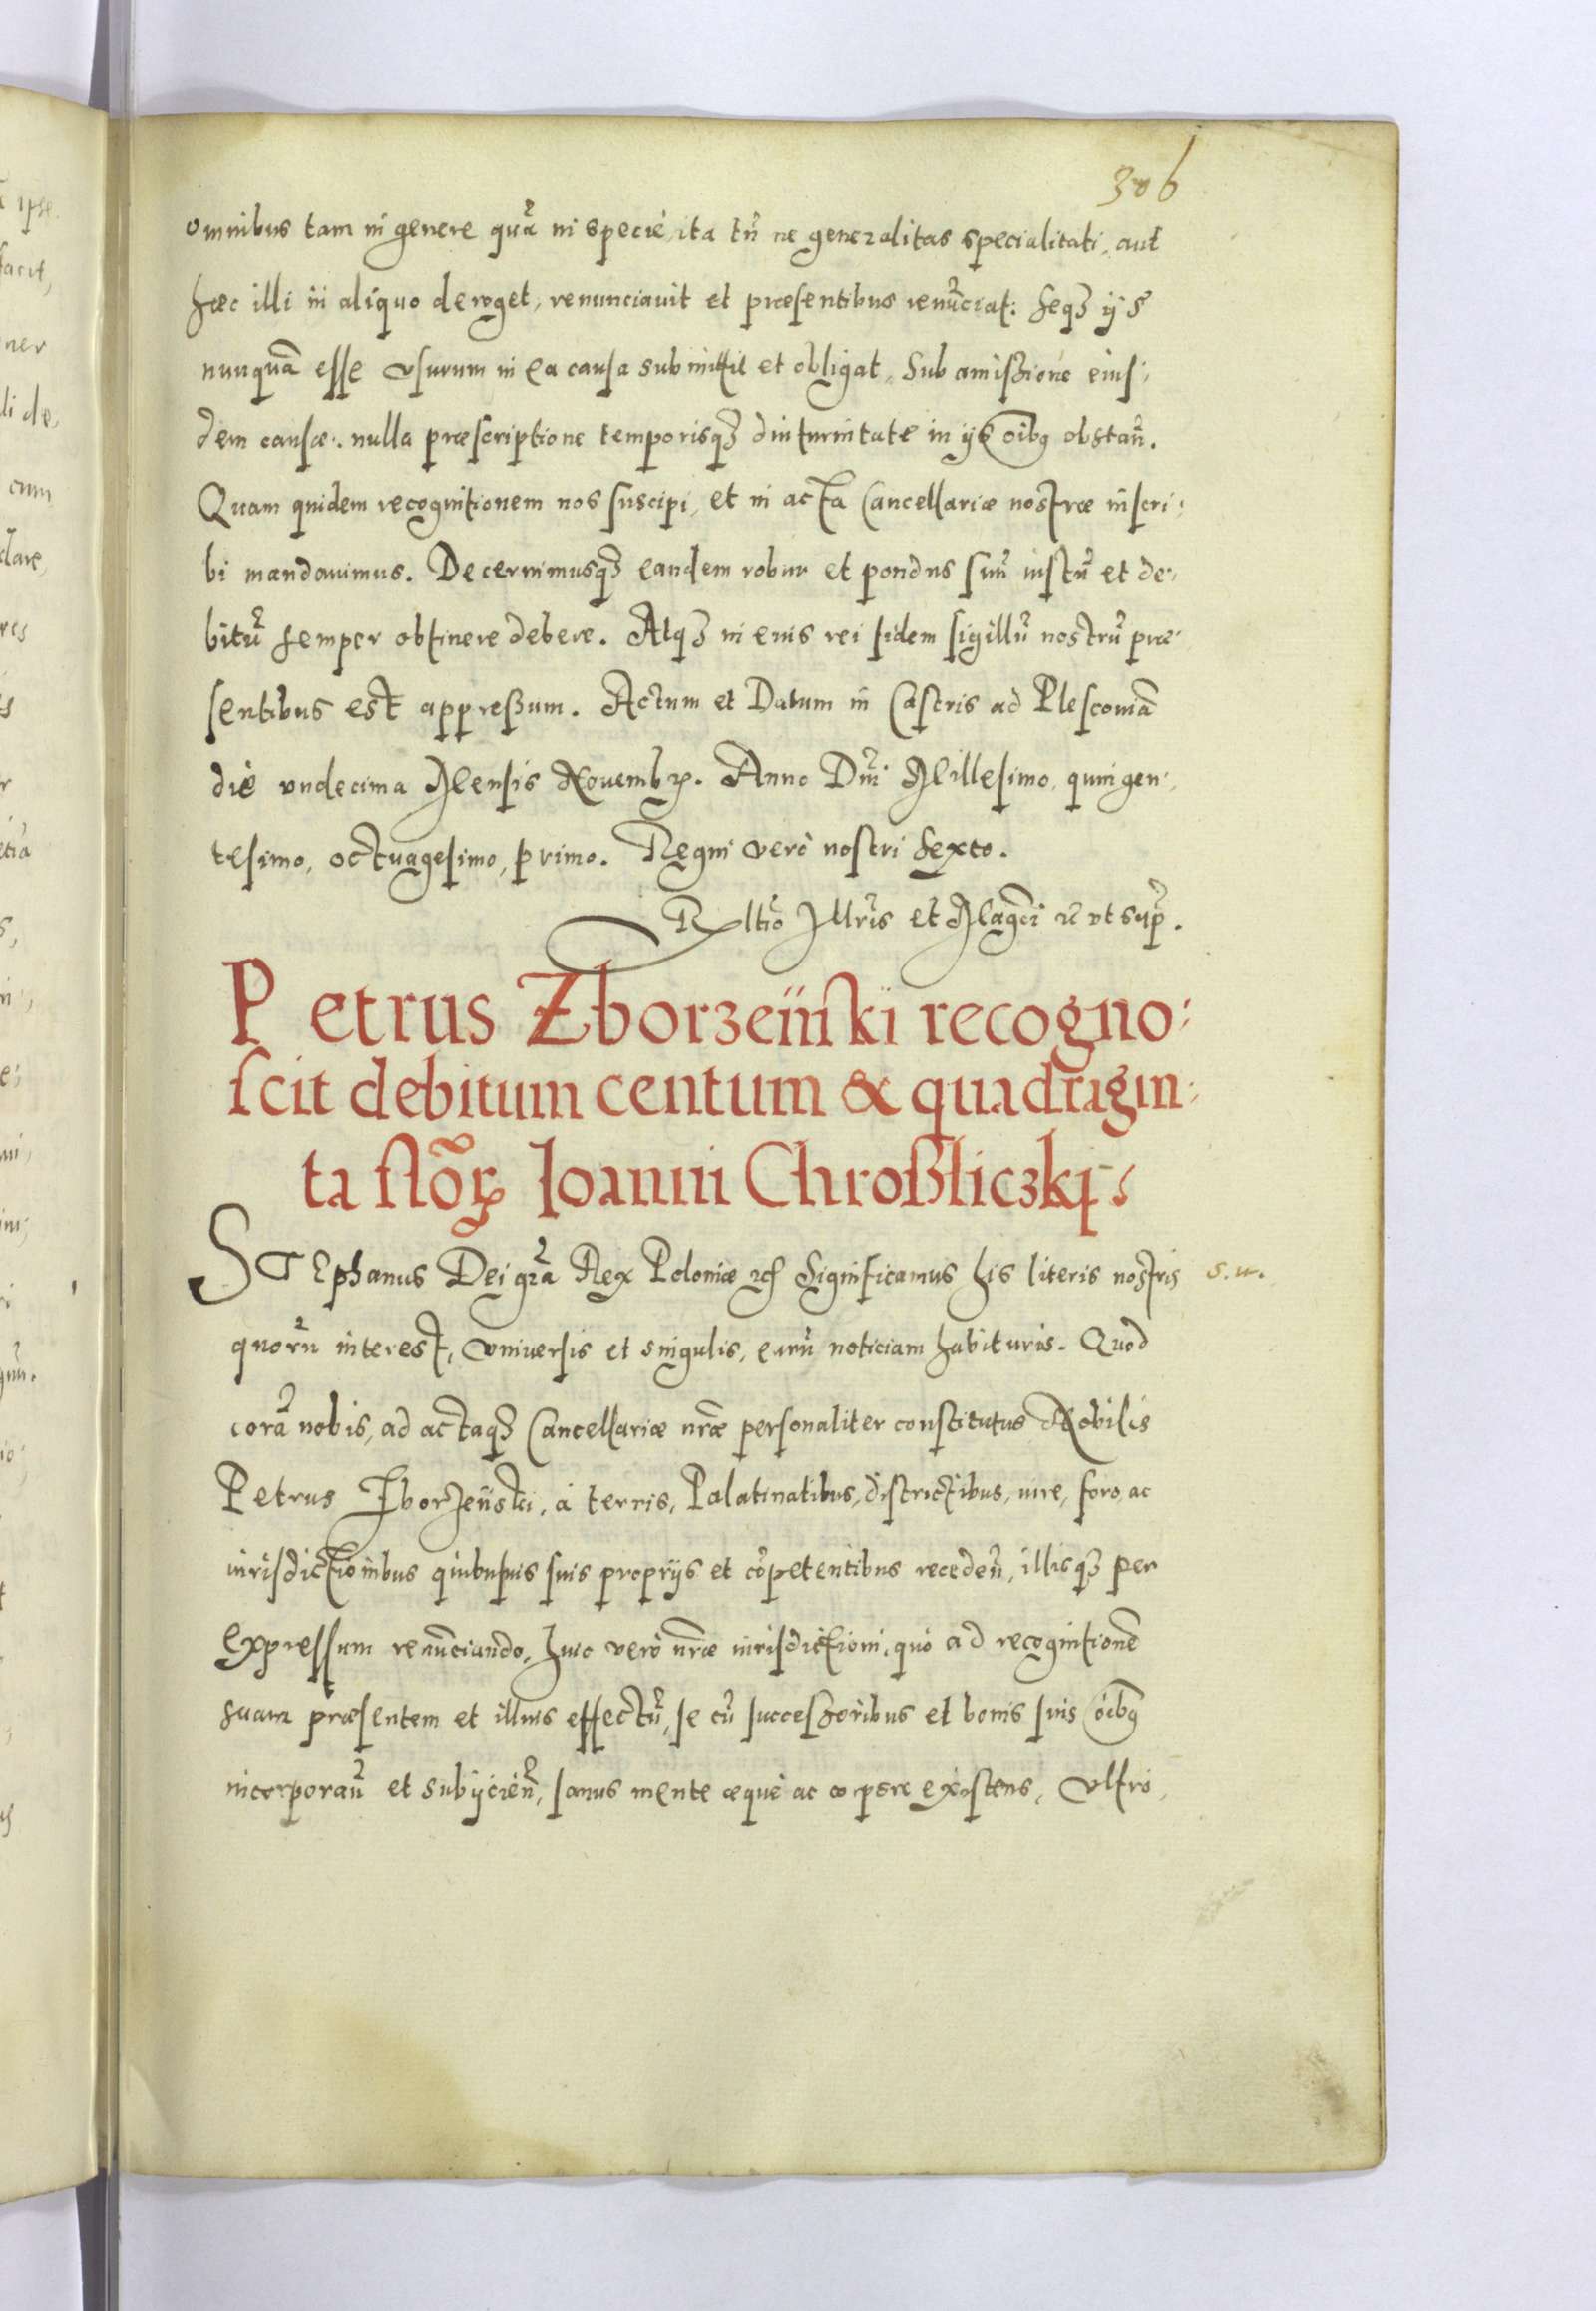 306
omnibus tam in genere quã in specie, ita tñ ne generalitas specialitati, aut
hæc illi in aliquo deroget, renunciavit et præsentibus renũciat: seqȝ ijs
nunquã esse vsurum in ea causa submittit et obligat, sub amissione eius,
dem causæ. nulla præscriptione temporisqȝ diuturnitate in ijs oibȝ obstañ.
Quam quidem recognitionem nos suscipi, et in acta Cancellariæ nostræ inscri,
bi mandavimus. Decernimusqȝ eandem robur et pondus suũ iustũ et de,
bitũ semper obtinere debere. Atqȝ in eius rei fidem sigillũ nostrũ præ,
sentibus est appressum. Actum et Datum in Castris ad Plescoviã
die vndecima Mensis Novembꝶ. Anno Dñi Millesimo, quingen,
tesimo, octuagesimo, primo. Regni vero nostri sexto.
Rltio Illris et Magci ꝛc vt sup.
Petrus Zborzeiiski recogno:
scit debitum centum & quadragin:
ta floꝶ Ioanni Chroßliczkj
STEphanus Dei grã Rex Poloniæ ꝛc Significamus his literis nostris s.u.
quorũ interest, vniuersis et singulis, earũ noticiam habituris. Quod
corã nobis, ad actaqȝ Cancellariæ nræ personaliter constitutus Nobilis
Petrus Zborzeiiski, à terris, Palatinatibus, districtibus, iure, foro, ac
iurisdictionibus quibusuis suis proprijs et cõpetentibus recedeñ, illisqȝ per
expressum renũciando, huic verò nræ iurisdictioni, quò ad recognitionẽ
suam præsentem et illius effectũ, se cũ successoribus et bonis suis oibȝ
incorporañ et subijcieñ, sanus mente æquè ac corpore existens, vltrò,